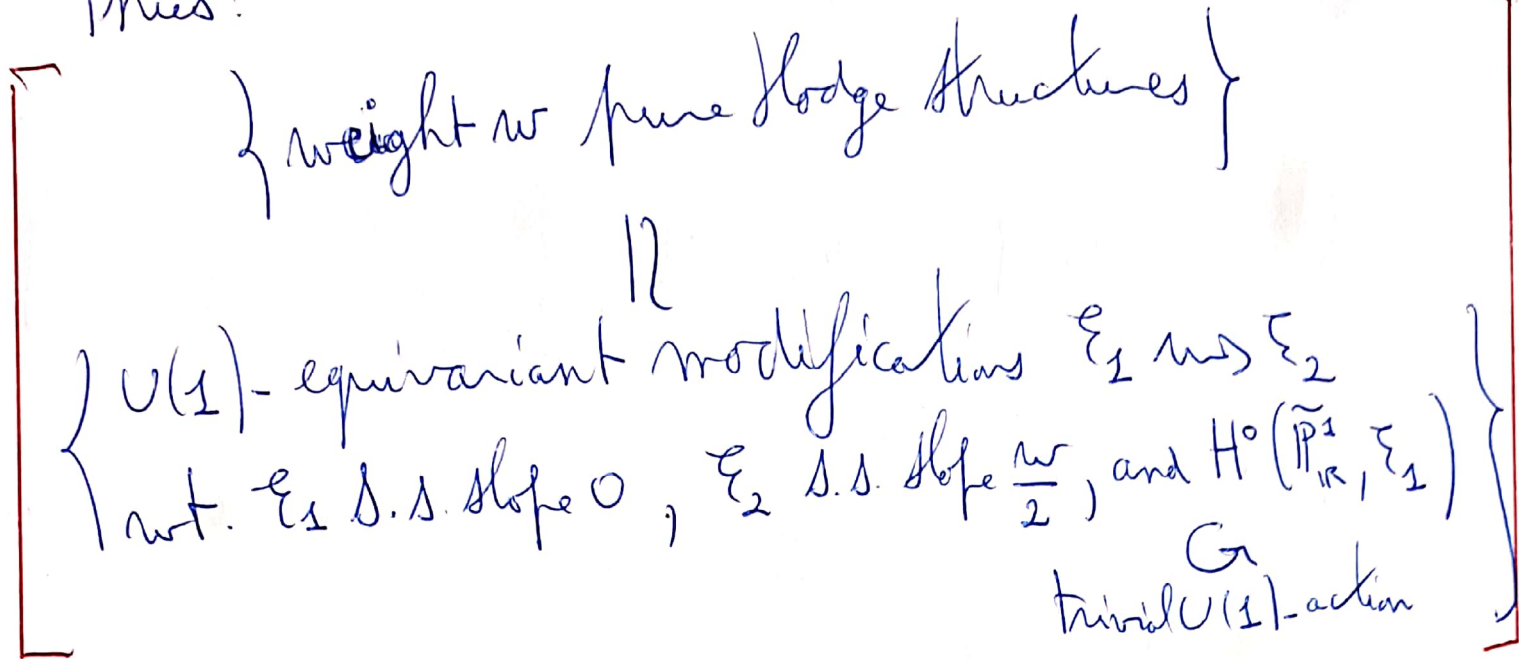 Thus:
{ weight w pure Hodge structures }
≃
{ U(1)-equivariant modifications ℰ₁ ⇝ ℰ₂
s.t. ℰ₁ s.s. slope 0, ℰ₂ s.s. slope w/2, and H⁰(P̃¹_ℝ, ℰ₁) }
trivial U(1)-action